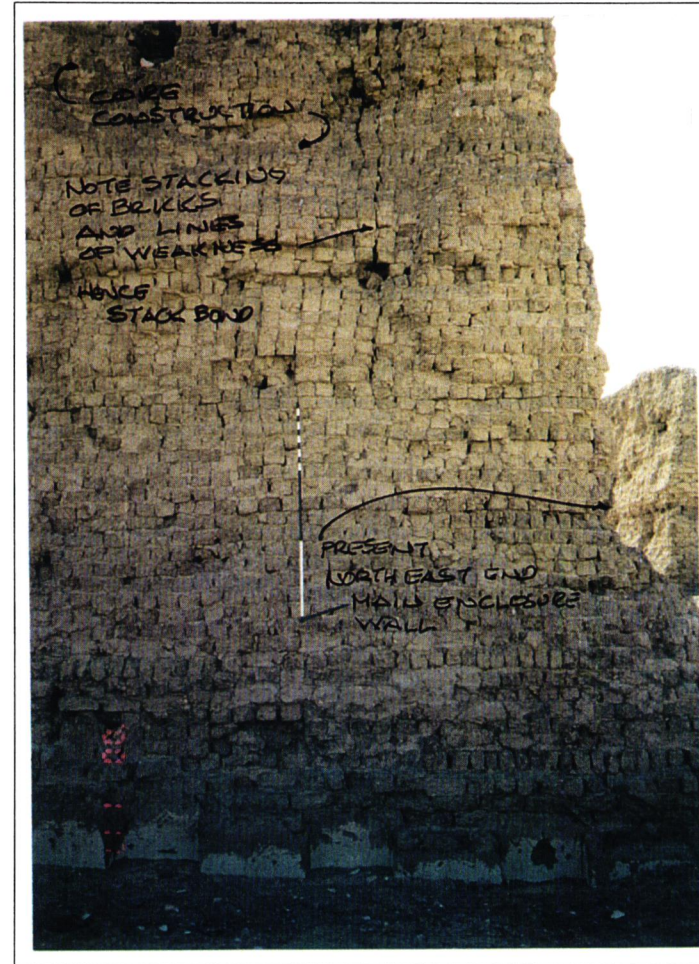 CORE
CONSTRUCTION
NOTE STACKING
OF BRICKS
AND LINES
OF WEAKNESS
HENCE
STACK BOND
PRESENT
NORTH EAST END
MAIN ENCLOSURE
WALL